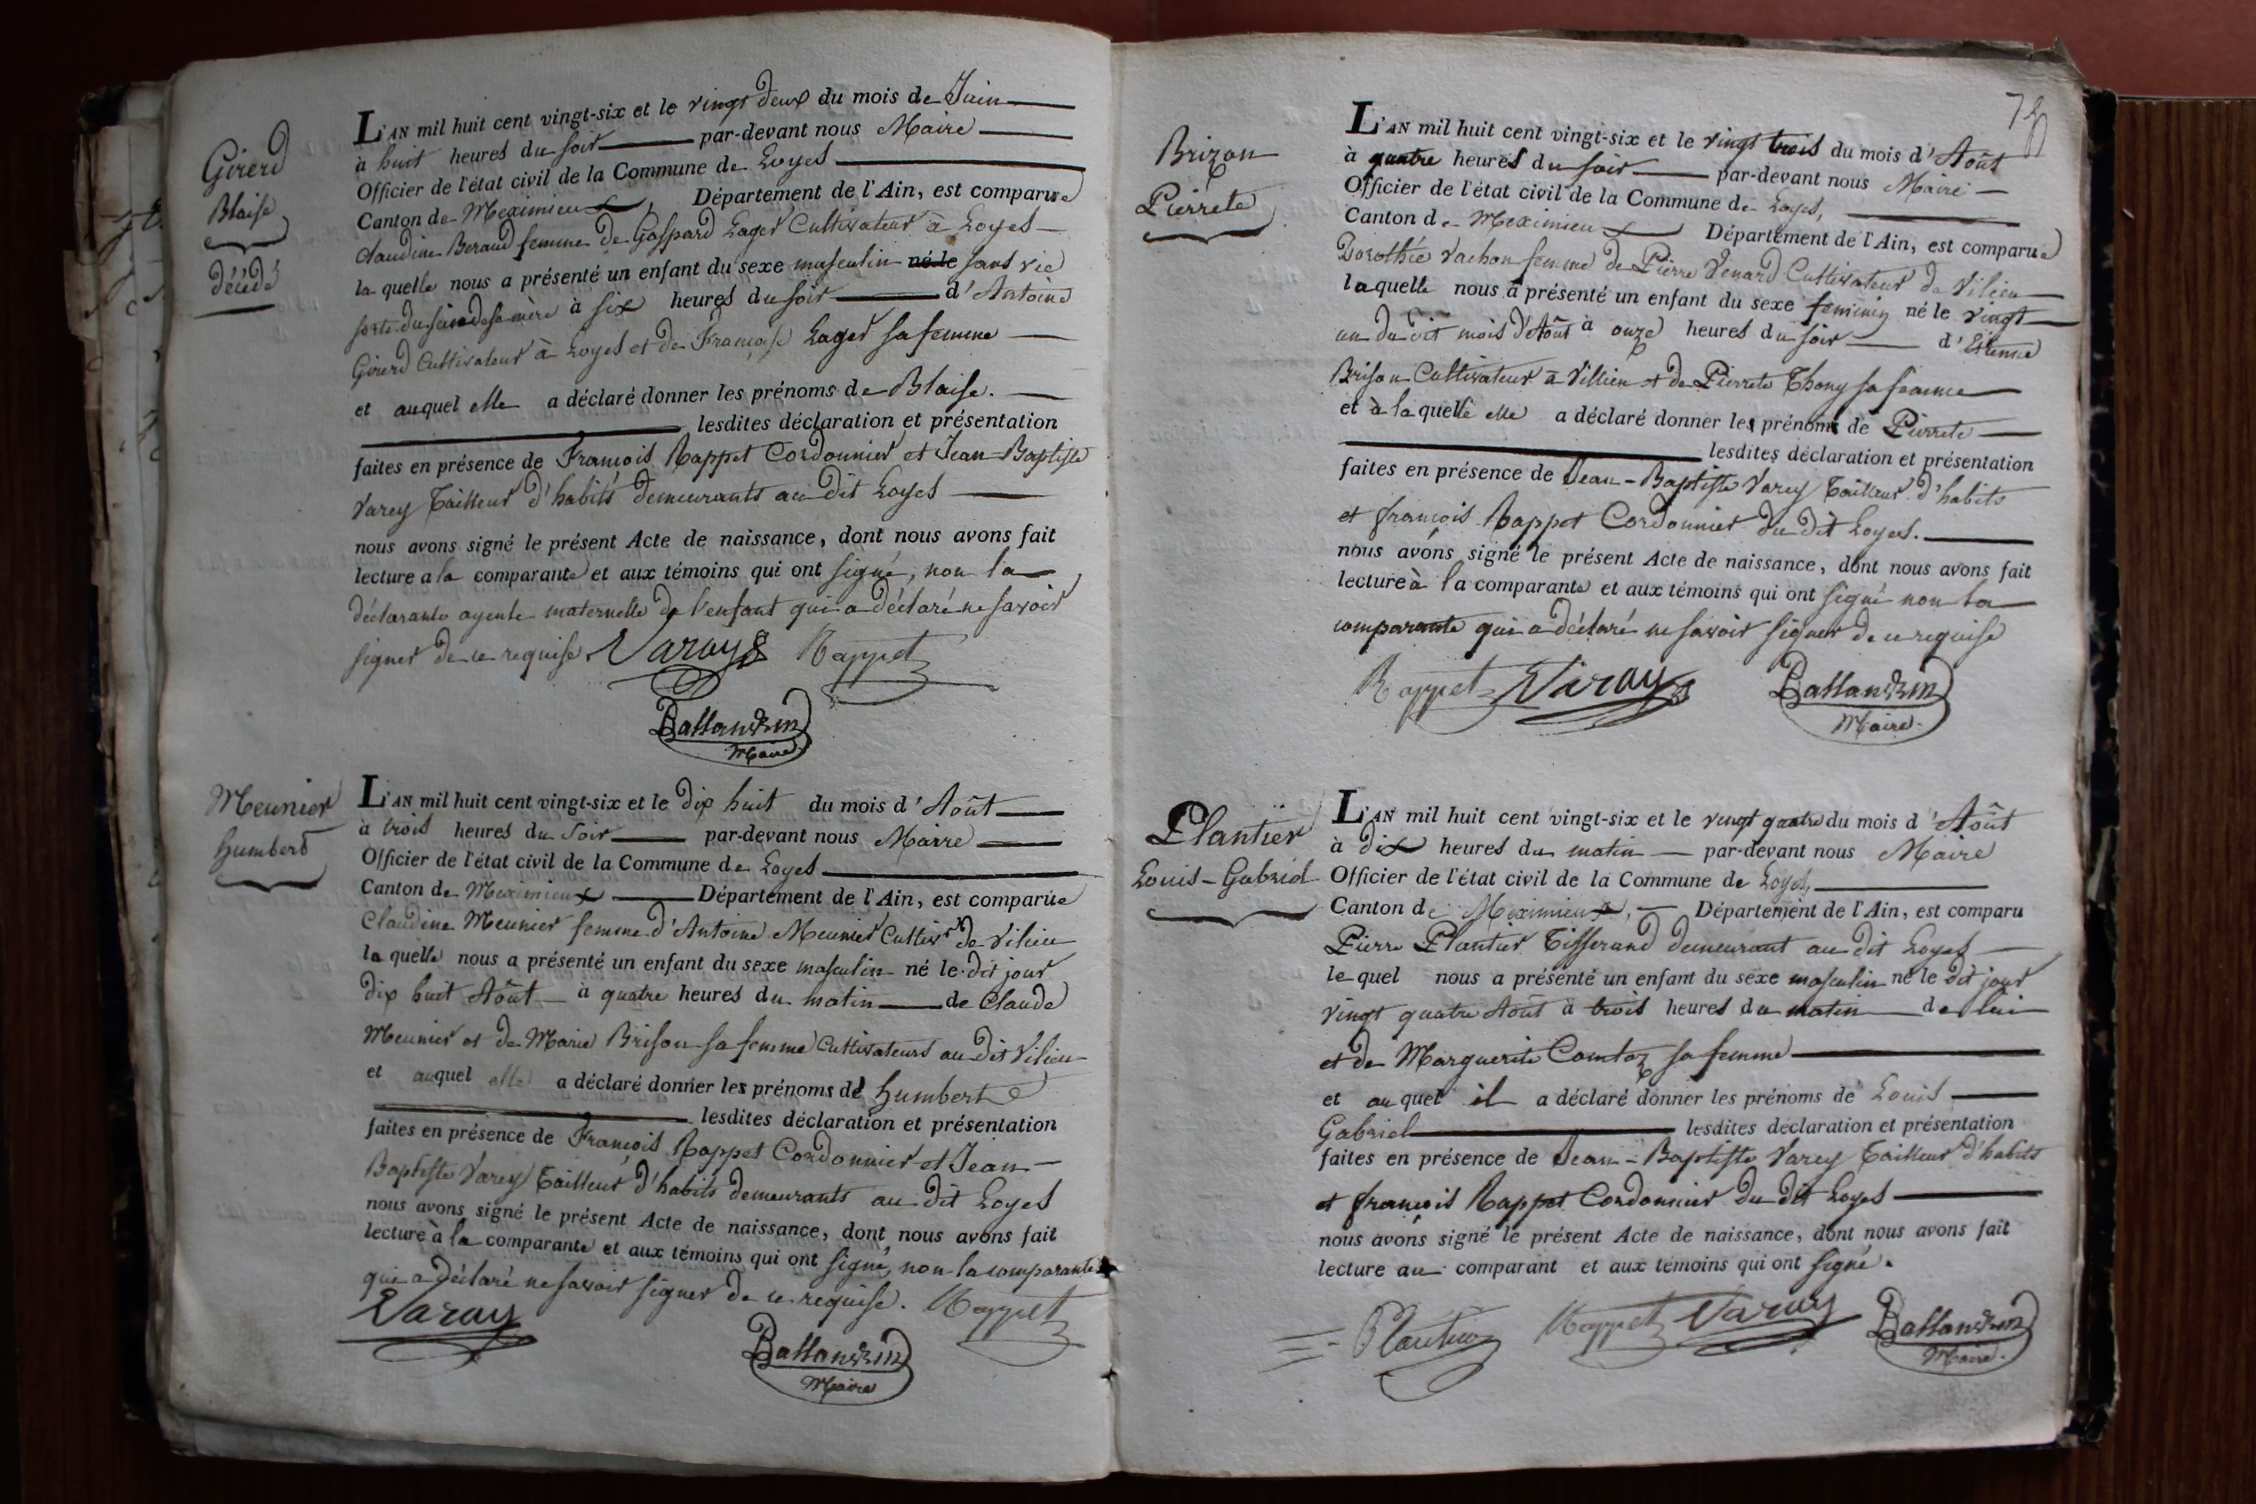 Girerd
Blaise
décédé
L'AN mil huit cent vingt-six et le vingt deux du mois de Juin
à huit heures du soir par-devant nous Maire
Officier de l'état civil de la Commune de Loyes
Canton de Meximieux, Département de l'Ain, est comparue
Claudine Beraud femme de Gaspard Lager Cultivateur à Loyes
la quelle nous a présenté un enfant du sexe masculin né le sans vie
sorti du sein de sa mère à six heures du soir d'Antoine
Girerd Cultivateur à Loyes et de Françoise Lager sa femme
et auquel elle a déclaré donner les prénoms de Blaise.
lesdites déclaration et présentation
faites en présence de François Rappet Cordonnier et Jean-Baptiste
Varey Tailleur d'habits demeurants au dit Loyes
nous avons signé le présent Acte de naissance, dont nous avons fait
lecture a la comparante et aux témoins qui ont signé, non la
déclarante ayeule maternelle de l'enfant qui a déclaré ne savoir
signer de ce requise. Varay Rappet
Ballandrin
Maire
Meunier
humbert
L'AN mil huit cent vingt-six et le dix huit du mois d'Août
à trois heures du Soir par-devant nous Marre
Officier de l'état civil de la Commune de Loyes
Canton de Meximieux Département de l'Ain, est comparue
Claudine Meunier femme d'Antoine Meunier Cultivr de Vilieu
la quelle nous a présenté un enfant du sexe masculin né le dit jour
dix huit Août à quatre heures du matin de Claude
Meunier et de Marie Brison sa femme Cultivateurs au dit Vilieu
et auquel elle a déclaré donner les prénoms de humbert
lesdites déclaration et présentation
faites en présence de François Rappet Cordonnier et Jean
Baptiste Varey Tailleur d'habits demeurants au dit Loyes
nous avons signé le présent Acte de naissance, dont nous avons fait
lecture à la comparante et aux témoins qui ont signé, non la comparante
qui a déclaré ne savoir signer de ce requise. Rappet
Varay
Ballandrin
Maire
Brizon
Pierrete
L'AN mil huit cent vingt-six et le vingt trois du mois d'Août
à quatre heures du soir par-devant nous Maire
Officier de l'état civil de la Commune de Loyes,
Canton de Meximieux Département de l'Ain, est comparue
Dorothée Vachon femme de Pierre Venard Cultivateur de Vilieu
laquelle nous a présenté un enfant du sexe feminin né le vingt
un du dit mois d'Août à onze heures du soir d'Etienne
Brison Cultivateur à Villieu et de Pierrete Thony sa femme
et à laquelle elle a déclaré donner les prénoms de Pierrete
lesdites déclaration et présentation
faites en présence de Jean-Baptiste Varey Tailleur d'habits
et françois Rappet Cordonnier du dit Loyes.
nous avons signé le présent Acte de naissance, dont nous avons fait
lecture à la comparante et aux témoins qui ont signé non la
comparante qui a déclaré ne savoir signer de ce requise
Rappet Varay Ballandrin
Maire.
Plantier
Louis-Gabriel
L'AN mil huit cent vingt-six et le vingt quatre du mois d'Août
à dix heures du matin par-devant nous Maire
Officier de l'état civil de la Commune de Loyes,
Canton de Meximieux, Département de l'Ain, est comparu
Pierre Plantier Tisserand demeurant au dit Loyes
le quel nous a présenté un enfant du sexe masculin né le dit jour
vingt quatre Août à trois heures du matin de lui
et de Marguerite Comtoz sa femme
et au quel il a déclaré donner les prénoms de Louis
Gabriel lesdites déclaration et présentation
faites en présence de Jean-Baptiste Varey Tailleur d'habits
et françois Rappet Cordonnier du dit Loyes
nous avons signé le présent Acte de naissance, dont nous avons fait
lecture au comparant et aux témoins qui ont signé.
Plantier Rappet Varay Ballandrin
Maire.